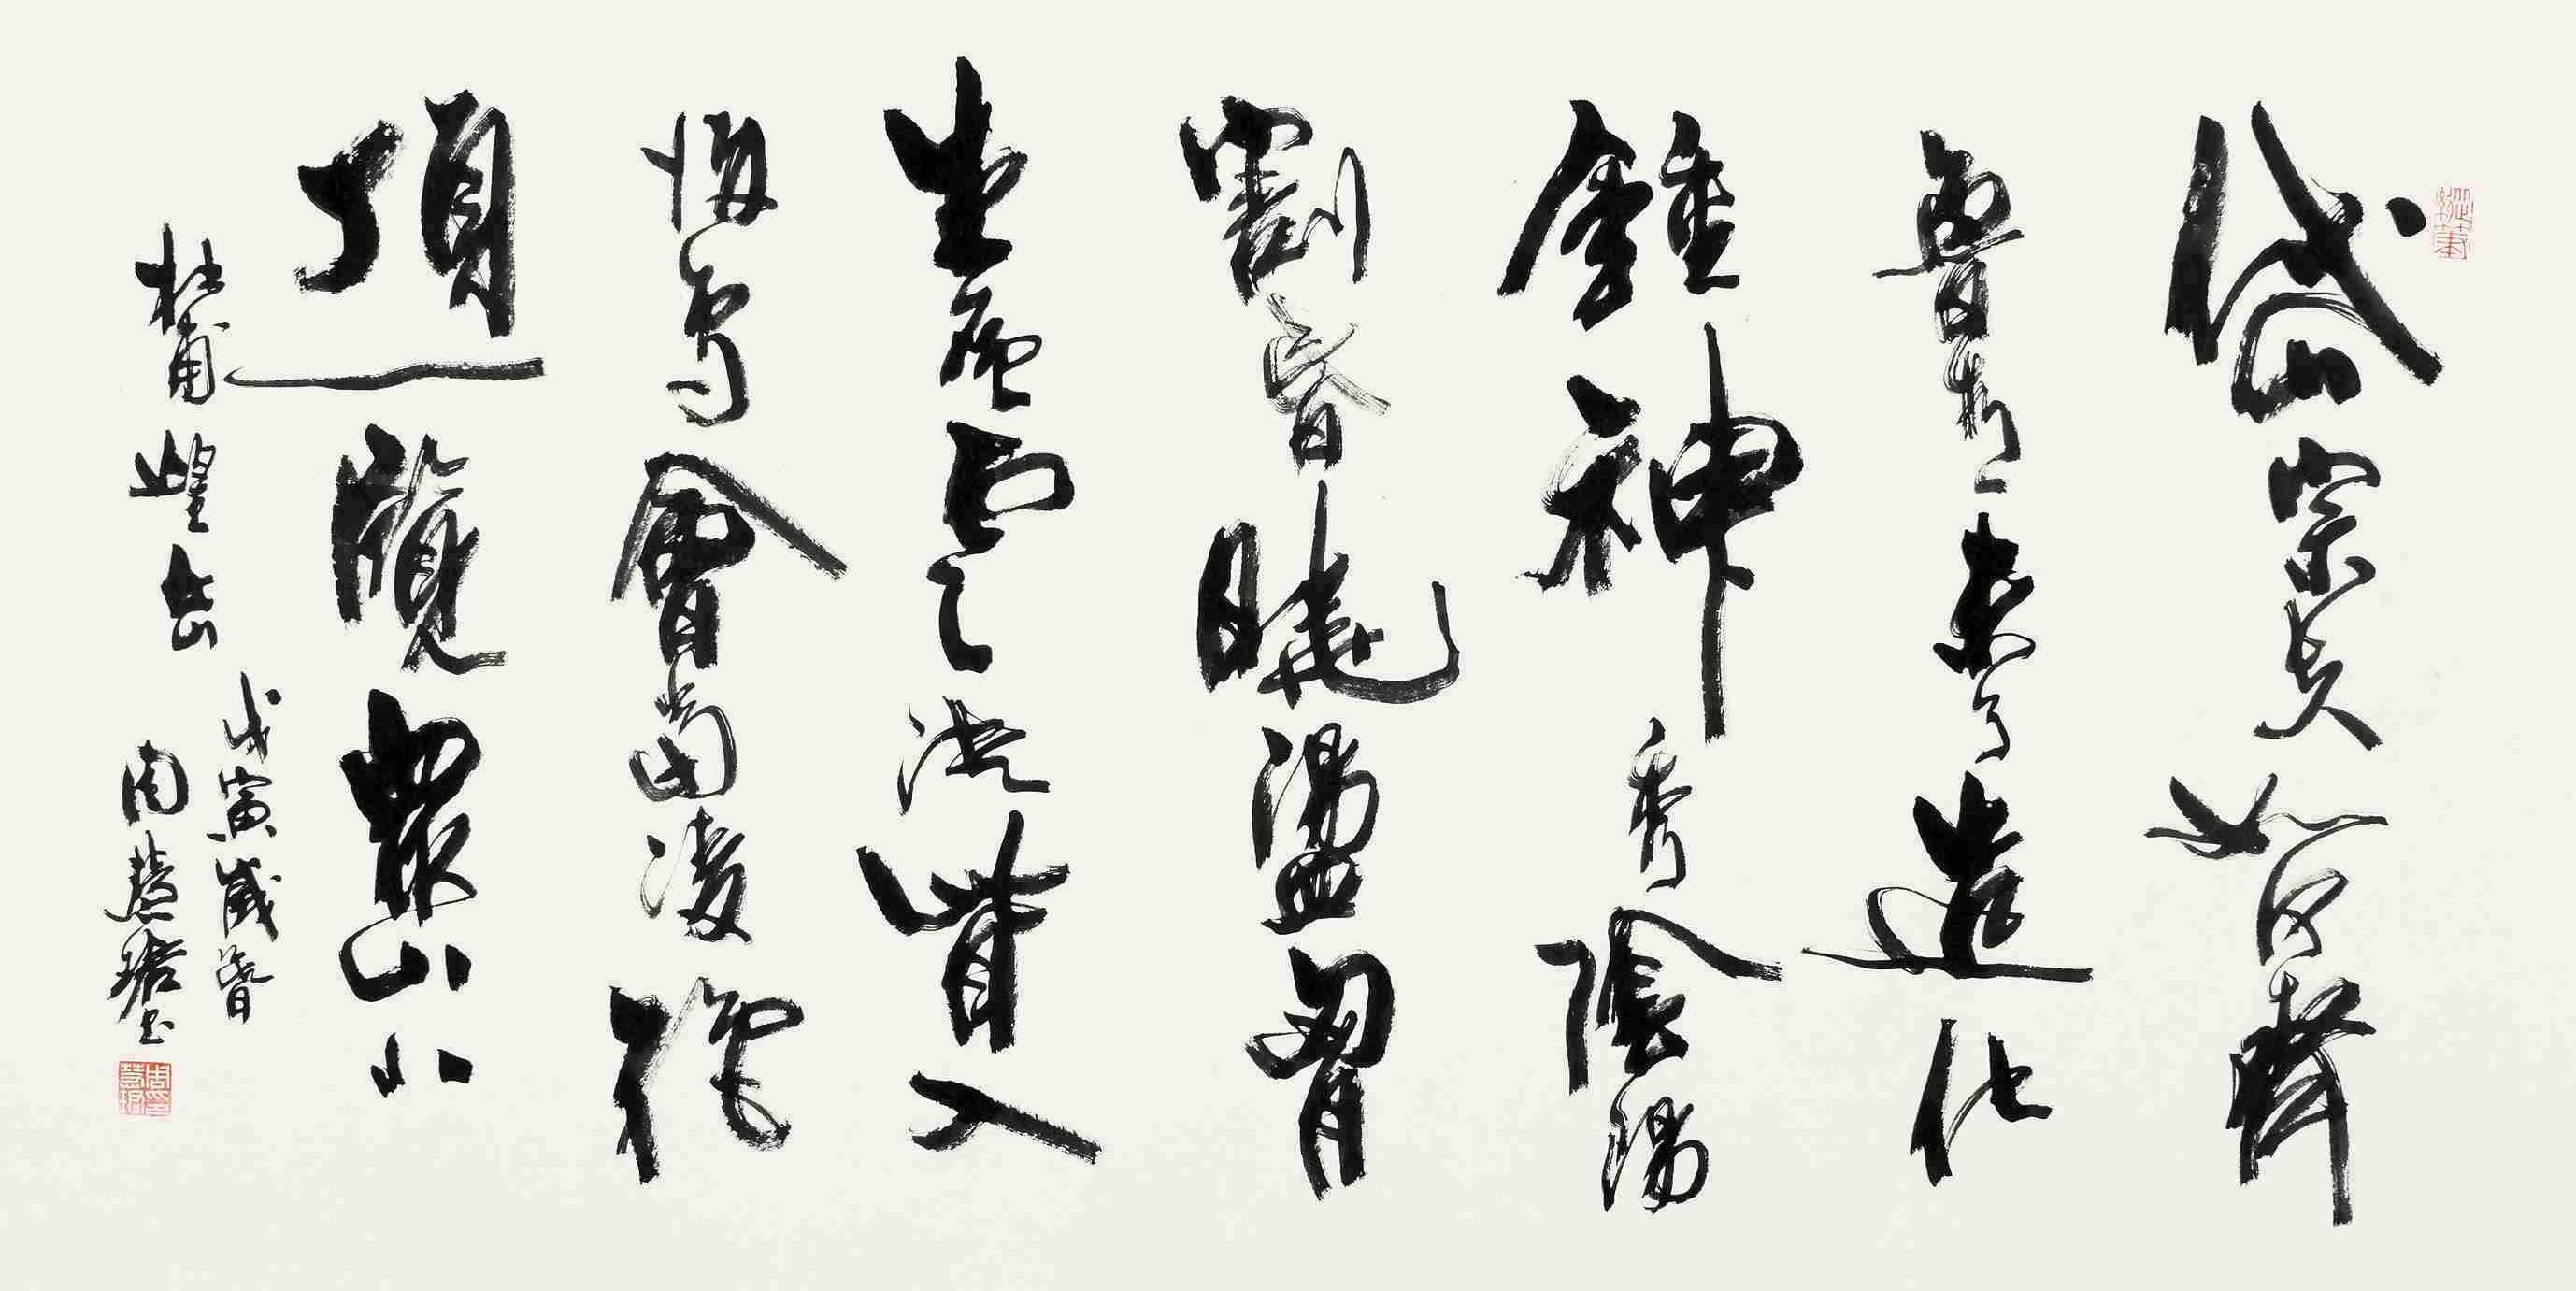 岱宗夫如何齊
魯青未了造化
鍾神秀陰陽
割昏曉盪胷
生層雲決眥入
歸鳥會當凌絕
頂一覽衆山小
杜甫望岳
戊寅歲
周慧珺書